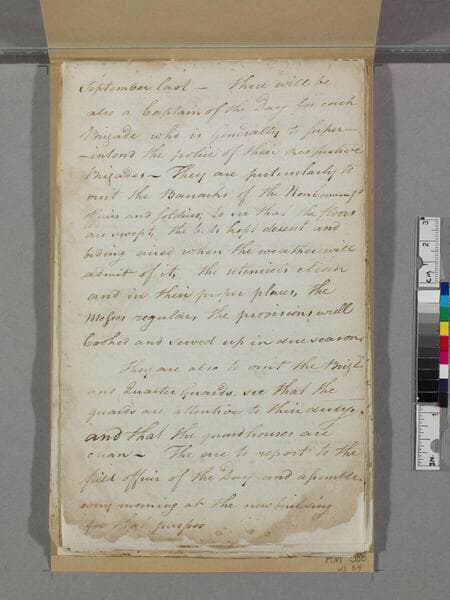 September last — There will be
also a Captain of the Day for each
Brigade who is generally to super-
-intend the police of their respective
Brigades — They are particularly to
visit the Barracks of the Noncommiss^d
and Soldiers, to see that the floors
are swept, the kept decent and
biding aired when the weather will
admit of it, the utencels clean
and in their proper places, the
Messes regular, the provisions well
Coohed and served up in due season
They are also to visit the
and Quarter Guards, see that the
guards are attentive to their duty,
and that the guardhouses are
clean — The are to report to the
field officer of the Day and assemble
every morning at the new building
for that purpos
HM
CM
1
2
3
IN.